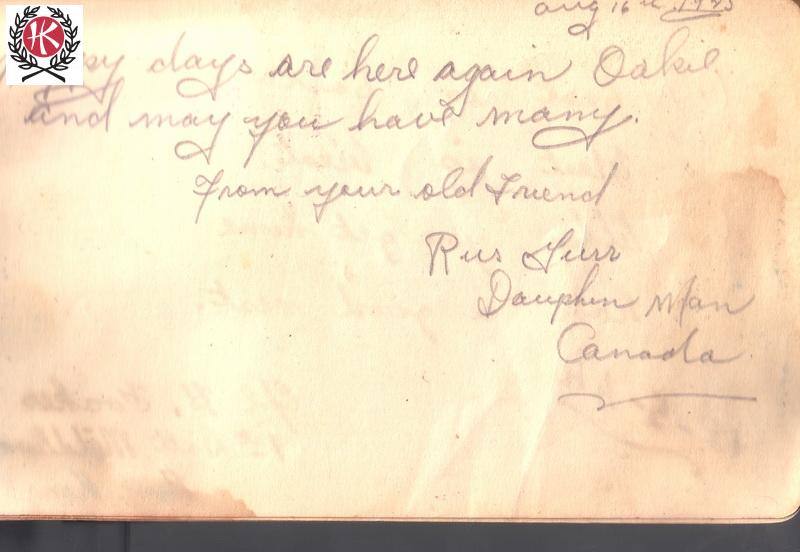 HK
Aug 16th 1945
days are here again Oakie
and may you have many.
From your old Friend
Rus
Dauphin Man
Canada